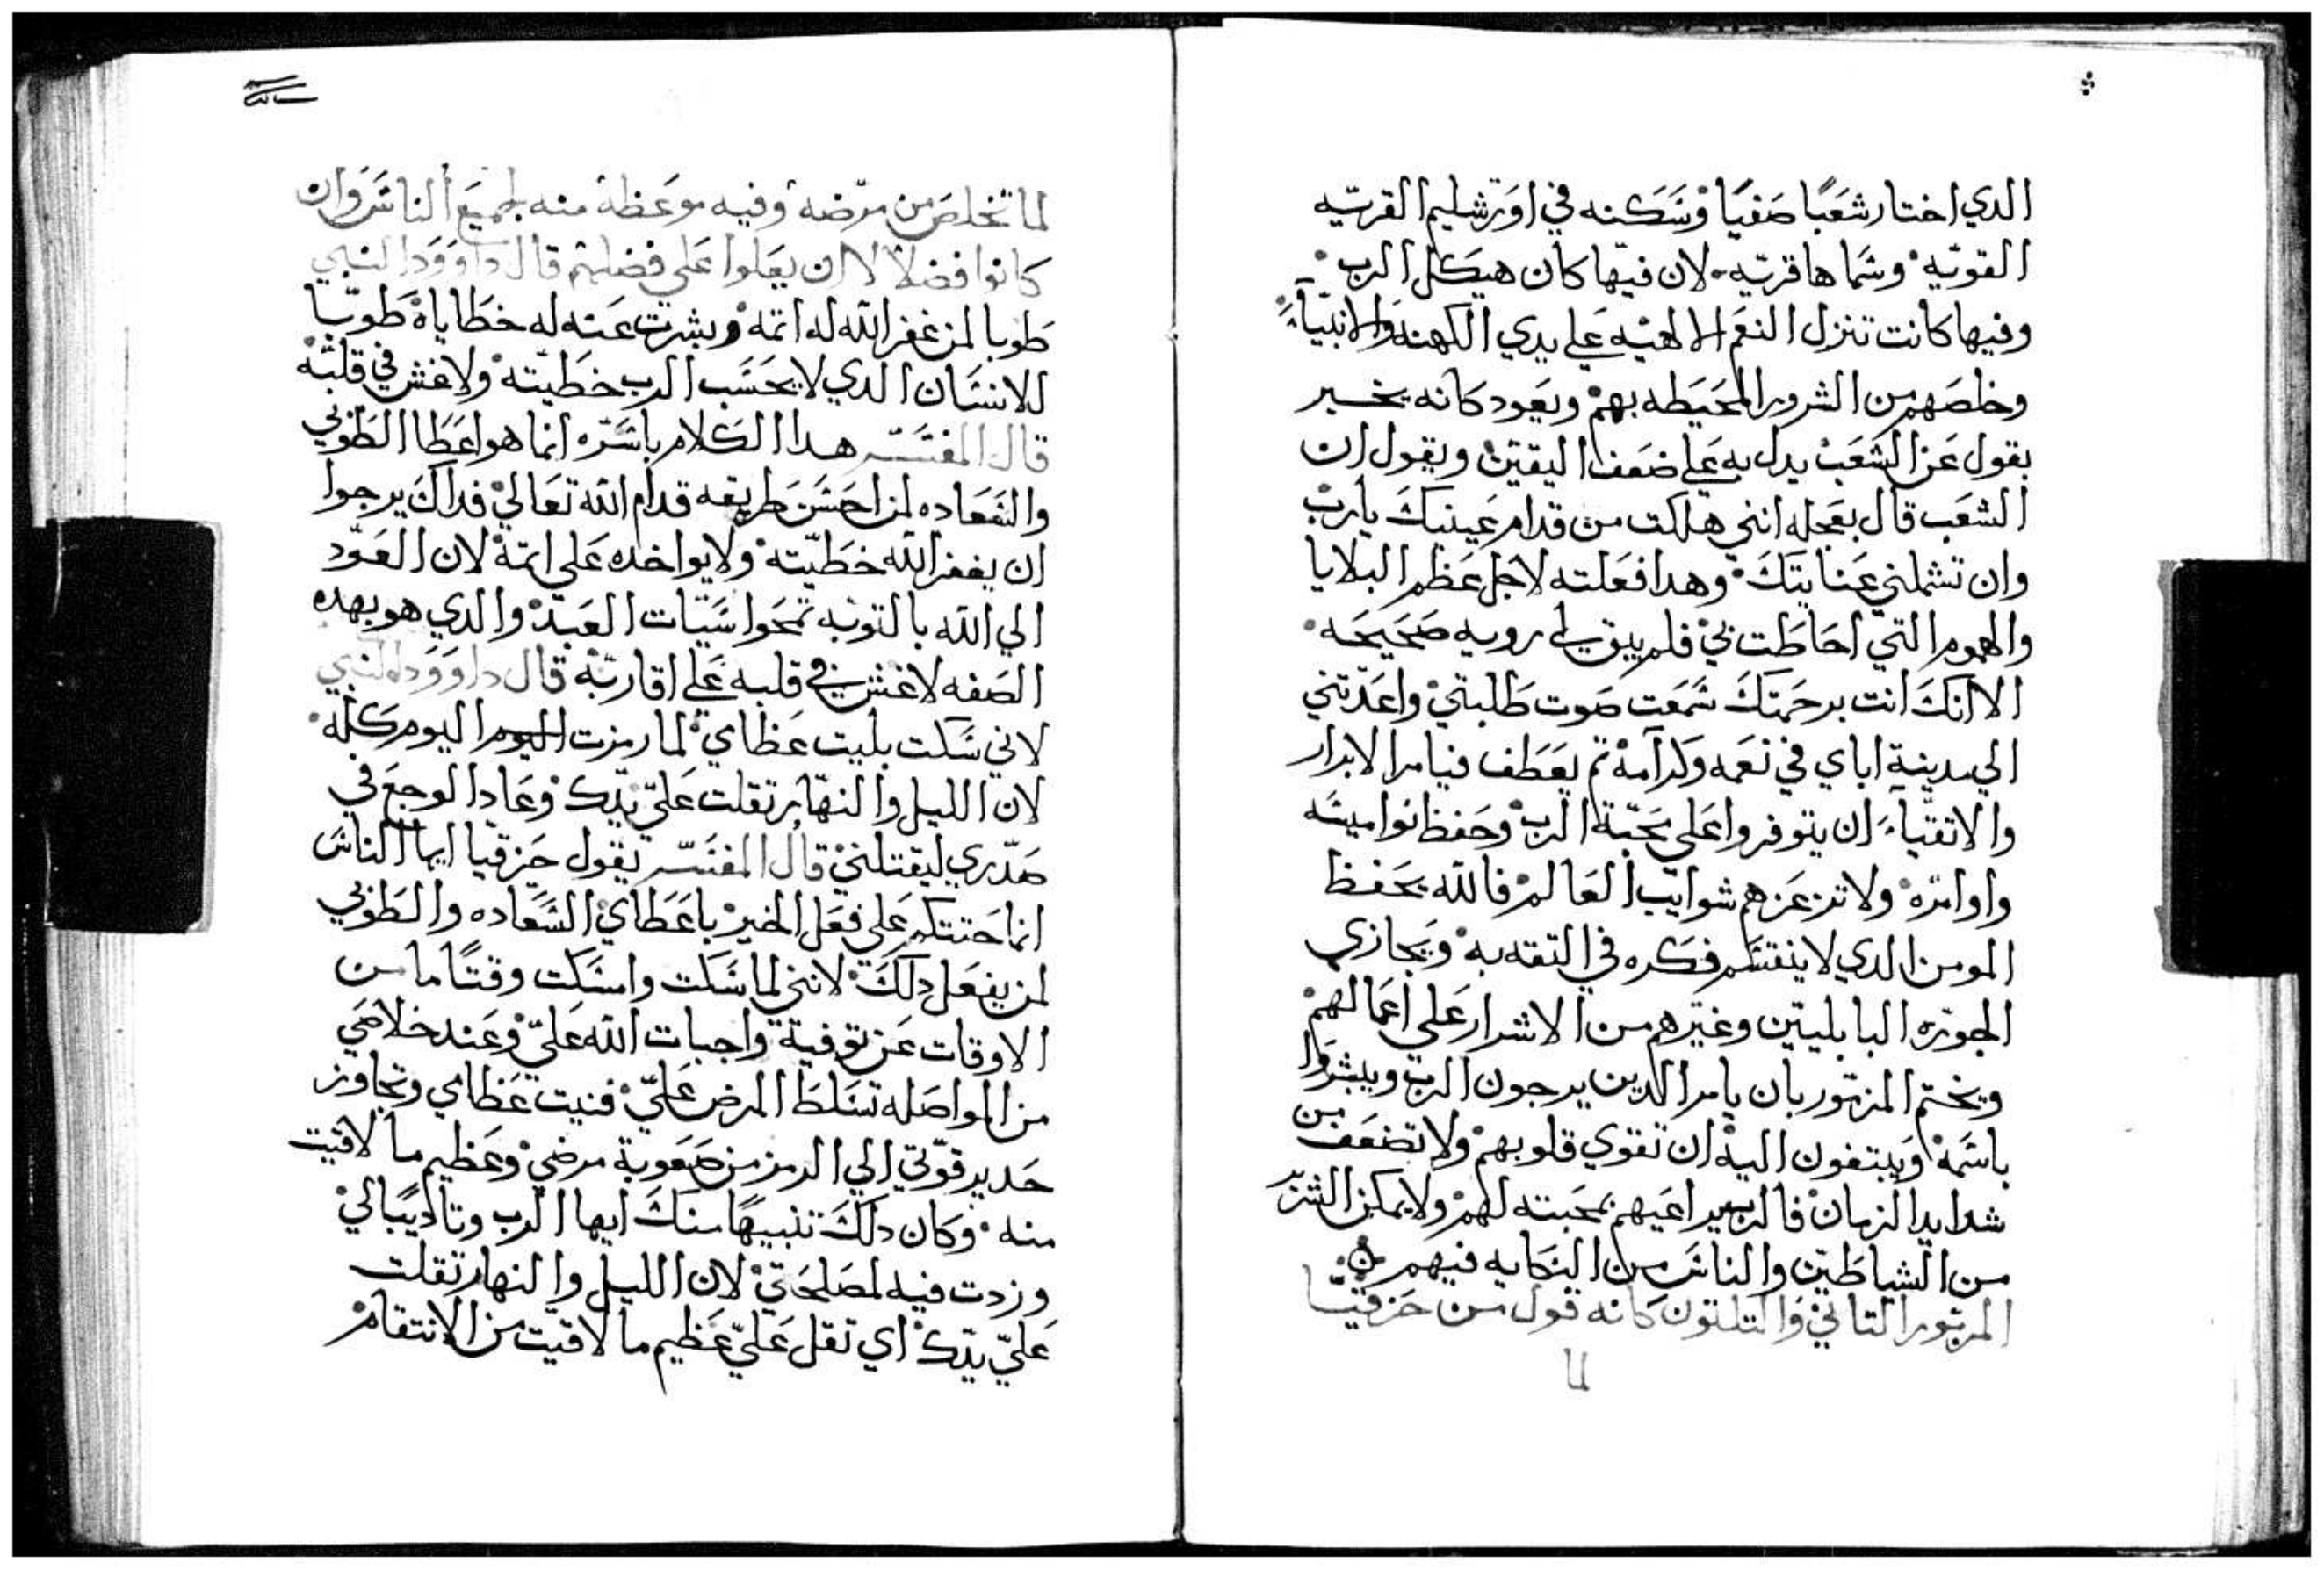 الدي اختار شعبًا صفيا وسكنه في اورشليم القريه
القويه وسماها قريه لان فيها كان هيكل الرب
وفيها كانت تنزل النعم الالاهيه علي يدي الكهنه والانبياء
وخلصهم من الشرور المحيطه بهم ويعود كانه يخبر
بقول عن الشعب يدل به علي ضعف اليقين ويقول ان
الشعب قال بعجله انني هلكت من قدام عينيك يارب
وان تشملني عنايتك وهدا فعلته لاجل عظم البلايا
والهموم التي احاطت بي فلم يبق لي رويه صحيحه
الا انك انت برحمتك سمعت صوت طلبتي واعدتني
الي مدينة اباي في نعمه وكرامه تم يعطف فيامر الابرار
والاتقياء ان يتوفروا علي محبة الرب وحفظ نواميسه
واوامره ولا تزعزعهم شوايب العالم فالله يحفظ
المومن الدي لا ينقسم فكره في التقه به ويجازي
الجوره البابليين وغيرهم من الاشرار علي اعمالهم
ويختم المزمور بان يامر الدين يرجون الرب ويبشروا
باسمه ويبتغون اليه ان تقوي قلوبهم ولا تضعف من
شدايد الزمان فالرب يراعيهم بمحبته لهم ولا يمكن الشرير
من الشياطين والناس من النكايه فيهم
المزمور التاني والتلتون كانه قول من حزقيا
لما
لما تخلص من مرضه وفيه موعظة منه لجميع الناس وان
كانوا فضلا لا ان يعلوا علي فضلهم قال داوود النبي
طوبا لمن غفر الله له اتمه وسترت عنه له خطاياه طوبا
للانسان الدي لا يحسب الرب خطيته ولا غش في قلبه
قال المفسر هدا الكلام باسره انما هو اعطا الطوبي
والسعاده لمن احسن طريقه قدام الله تعالي فداك يرجوا
ان يغفر الله خطيته ولا يواخده علي اتمه لان العود
الي الله بالتوبه تمحوا سيات العبد والدي هو بهده
الصفه لا غش في قلبه علي اقاربه قال داوود النبي
لاني سكت بليت عظاي لما رمزت اليوم اليوم كله
لان الليل والنهار تقلت علي يدك وعاد الوجع في
صدري ليقتلني قال المفسر يقول حزقيا ايها الناس
انما حتتكم علي فعل الخير باعطاي السعاده والطوبي
لمن يفعل دلك لانني لما سكت وامسكت وقتًا ما من
الاوقات عن توفية واجبات الله علي وعند خلاصي
من المواصله تسلط المرض علي فنيت عظاي وتجاوز
حد ير قوتي الي الرمز من صعوبة مرضي وعظيم ما لاقيت
منه وكان دلك تنبيهًا منك ايها الرب وتاديبًا لي
وزدت فيه لمصلحتي لان الليل والنهار تقلت
علي يدك اي تقل علي عظيم ما لاقيت من الانتقام